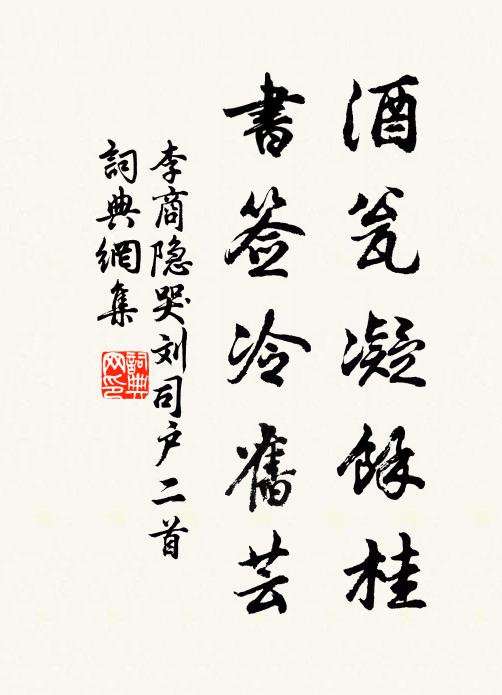 酒瓮凝餘桂
書签冷舊芸
李商隐哭刘司户二首
詞典網集
詞典网印